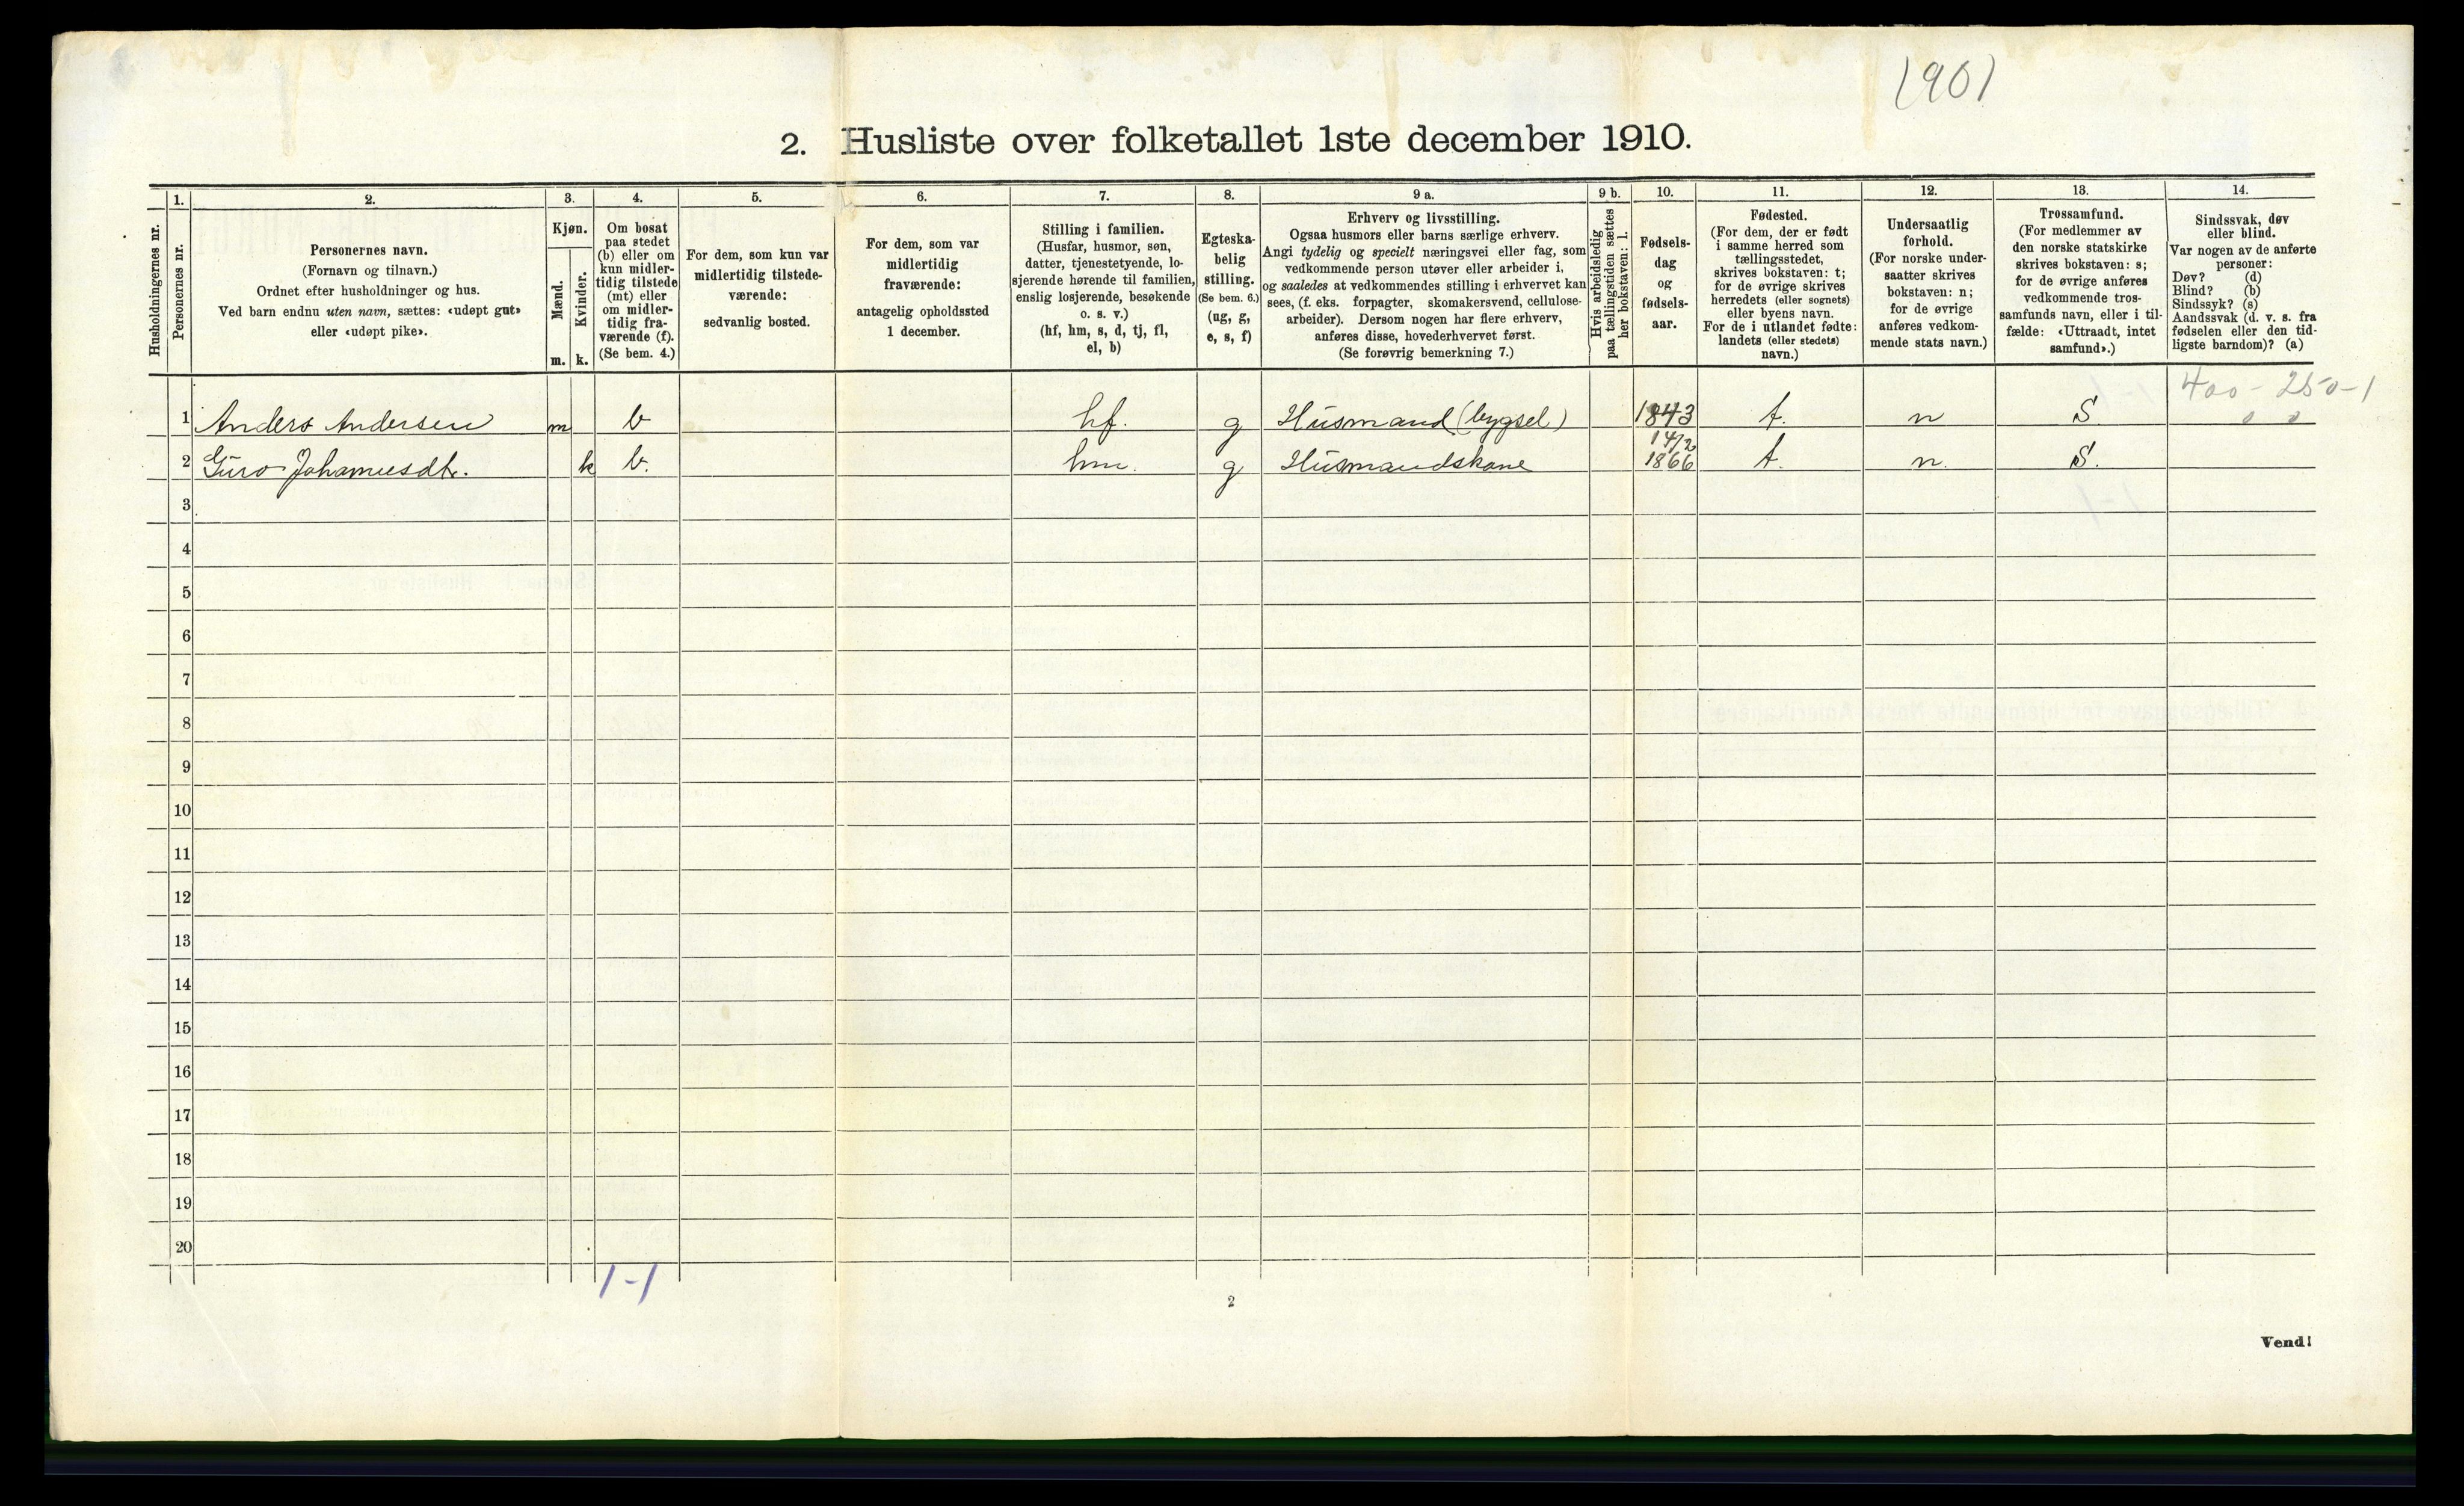 1901
2. Husliste over folketallet 1ste december 1910.
Husholdningernes nr.
1.
Personernes nr.
2.
Personernes navn.
(Fornavn og tilnavn.)
Ordnet efter husholdninger og hus.
Ved barn endnu uten navn, sættes: «udøpt gut»
eller «udøpt pike».
3.
Kjøn.
Mænd.
Kvinder.
m. k.
4.
Om bosat
paa stedet
(b) eller om
kun midler-
tidig tilstede
(mt) eller
om midler-
tidig fra-
værende (f).
(Se bem. 4.)
5.
For dem, som kun var
midlertidig tilstede-
værende:
sedvanlig bosted.
6.
For dem, som var
midlertidig
fraværende:
antagelig opholdssted
1 december.
7.
Stilling i familien.
(Husfar, husmor, søn,
datter, tjenestetyende, lo-
sjerende hørende til familien,
enslig losjerende, besøkende
o. s. v.)
(hf, hm, s, d, tj, fl,
el, b)
8.
Egteska-
belig
stilling.
(Se bem. 6.)
(ug, g,
e, s, f)
9 a.
Erhverv og livsstilling.
Ogsaa husmors eller barns særlige erhverv.
Angi tydelig og specielt næringsvei eller fag, som
vedkommende person utøver eller arbeider i,
og saaledes at vedkommendes stilling i erhvervet kan
sees, (f. eks. forpagter, skomakersvend, cellulose-
arbeider). Dersom nogen har flere erhverv,
anføres disse, hovederhvervet først.
(Se forøvrig bemerkning 7.)
9 b.
Hvis arbeidsledig
paa tællingstiden sættes
her bokstaven: l.
10.
Fødsels-
dag
og
fødsels-
aar.
11.
Fødested.
(For dem, der er født
i samme herred som
tællingsstedet,
skrives bokstaven: t;
for de øvrige skrives
herredets (eller sognets)
eller byens navn.
For de i utlandet fødte:
landets (eller stedets)
navn.)
12.
Undersaatlig
forhold.
(For norske under-
saatter skrives
bokstaven: n;
for de øvrige
anføres vedkom-
mende stats navn.)
13.
Trossamfund.
(For medlemmer av
den norske statskirke
skrives bokstaven: s;
for de øvrige anføres
vedkommende tros-
samfunds navn, eller i til-
fælde: «Uttraadt, intet
samfund».)
14.
Sindssvak, døv
eller blind.
Var nogen av de anførte
personer:
Døv? (d)
Blind? (b)
Sindssyk? (s)
Aandssvak (d. v. s. fra
fødselen eller den tid-
ligste barndom)? (a)
400 - 250 - 1
0 0
1 Anders Andersen m b hf. g Husmand (bygsel) 1843 t. n S
2 Guro Johannesdtr. k b. hm. g Husmandskone 14/2 1866 t. n. S.
3
4
5
6
7
8
9
10
11
12
13
14
15
16
17
18
19
20
1-1
2
Vend!